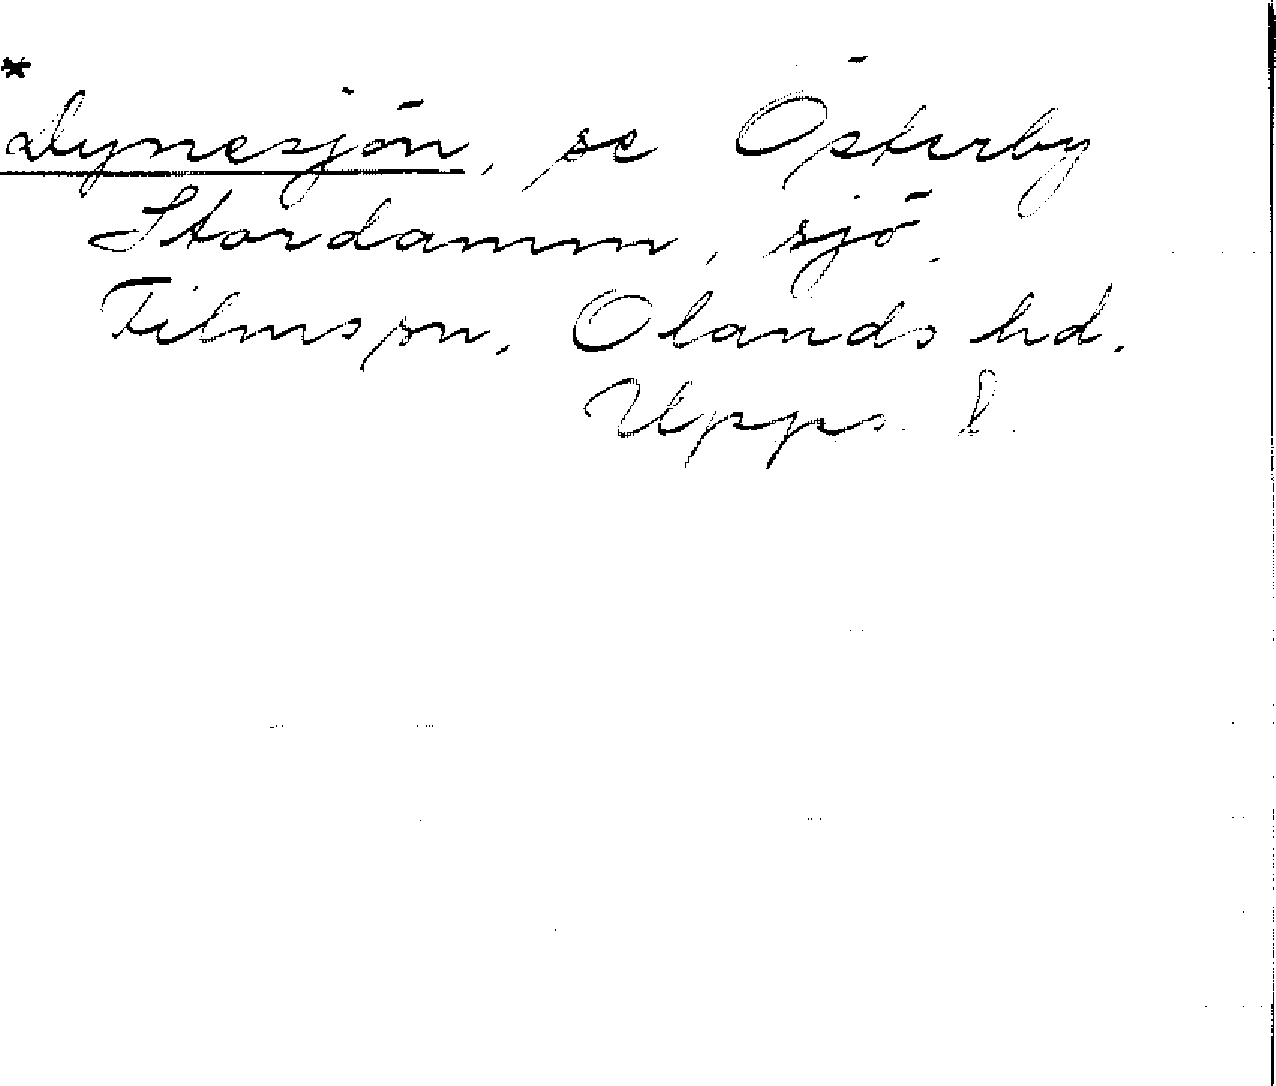 *
Dynesjön, se Österby
Stordamm, sjö.
Films sn, Olands hd.
Upps. l.